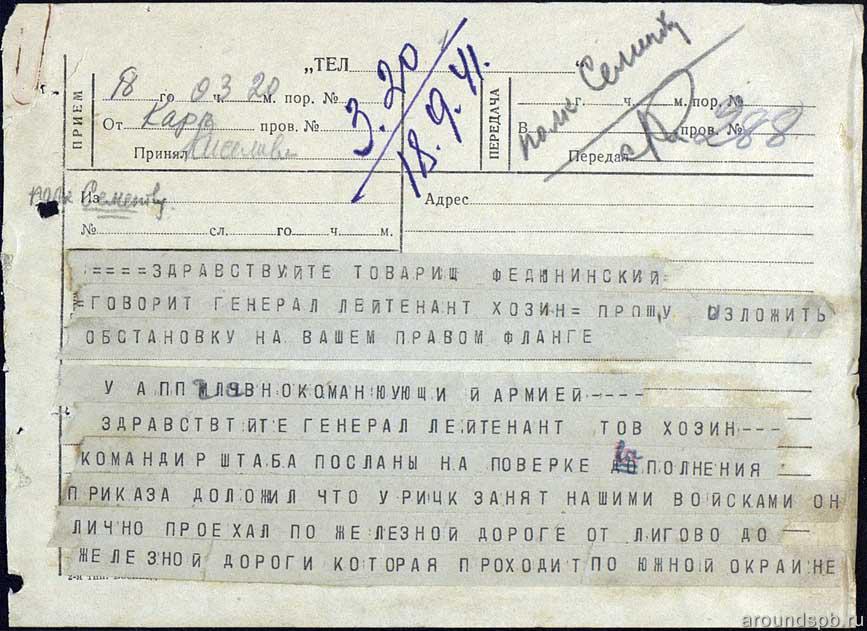 „ТЕЛ
ПРИЕМ
18 го 03 ч. 20 м. пор. №
От пров. №
Принял
3.20
18.9.41.
ПЕРЕДАЧА
полк Семенову
г. ч. м. пор. №
В пров. № 288
Передал
Из Семенову.
№ сл. го ч. м.
Адрес
====ЗДРАВСТВУЙТЕ ТОВАРИЩ ФЕДЮНИНСКИЙ-
ГОВОРИТ ГЕНЕРАЛ ЛЕЙТЕНАНТ ХОЗИН= ПРОШУ ИЗЛОЖИТЬ
ОБСТАНОВКУ НА ВАШЕМ ПРАВОМ ФЛАНГЕ
У АПП ЛАВНОКОМАНЮУЮЩИ Й АРМИЕЙ----
ЗДРАВСТВТЙТЕ ГЕНЕРАЛ ЛЕЙТЕНАНТ ТОВ ХОЗИН---
КОМАНДИР ШТАБА ПОСЛАНЫ НА ПОВЕРКЕ ДОПОЛНЕНИЯ
ПРИКАЗА ДОЛОЖИЛ ЧТО УРИЦК ЗАНЯТ НАШИМИ ВОЙСКАМИ ОН
ЛИЧНО ПРОЕХАЛ ПО ЖЕЛЕЗНОЙ ДОРОГЕ ОТ ЛИГОВО ДО —
ЖЕЛЕЗНОЙ ДОРОГИ КОТОРАЯ ПРОХОДИТ ПО ЮЖНОЙ ОКРАИНЕ
aroundspb.ru